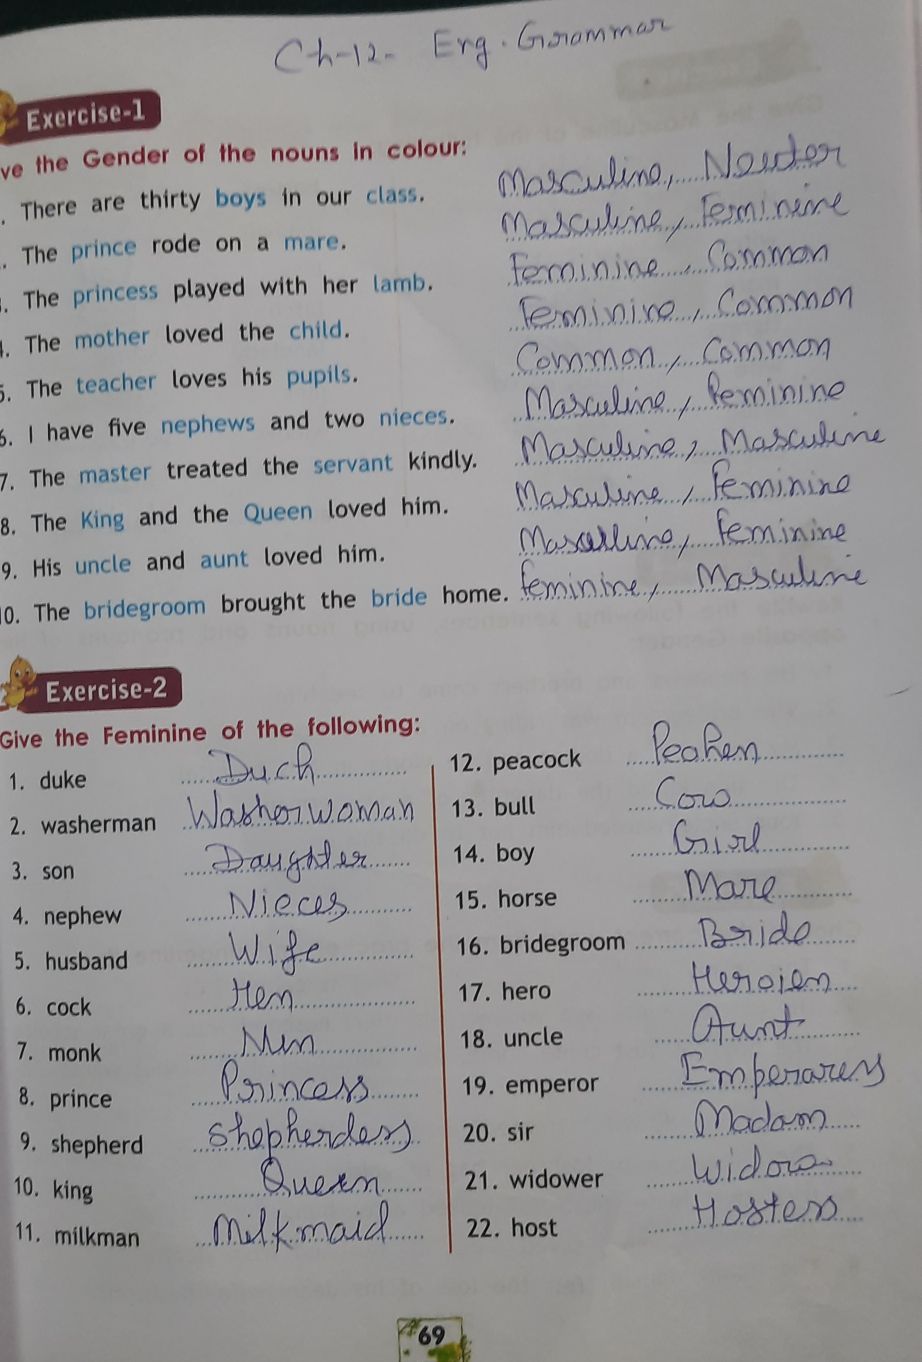 Ch-12- Eng. Grammar
Exercise-1
ve the Gender of the nouns in colour:
. There are thirty boys in our class. Masculine, Neuter
. The prince rode on a mare. Masculine, Feminine
. The princess played with her lamb. Feminine, Common
. The mother loved the child. Feminine, Common
5. The teacher loves his pupils. Common, Common
6. I have five nephews and two nieces. Masculine, Feminine
7. The master treated the servant kindly. Masculine, Masculine
8. The King and the Queen loved him. Masculine, Feminine
9. His uncle and aunt loved him. Masculine, Feminine
10. The bridegroom brought the bride home. feminine, Masculine
Exercise-2
Give the Feminine of the following:
1. duke Duch
2. washerman Washerwoman
3. son Daughter
4. nephew Nieces
5. husband Wife
6. cock Hen
7. monk Nun
8. prince Princess
9. shepherd Shepherdess
10. king Queen
11. milkman Milkmaid
12. peacock Peahen
13. bull Cow
14. boy Girl
15. horse Mare
16. bridegroom Bride
17. hero Heroien
18. uncle Aunt
19. emperor
20. sir Madam
21. widower Widow
22. host Hostess
69